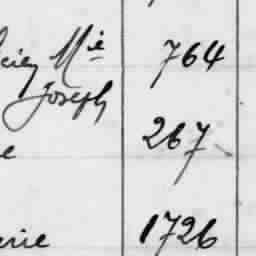 Mie 764
Joseph
e 267
erie 1726